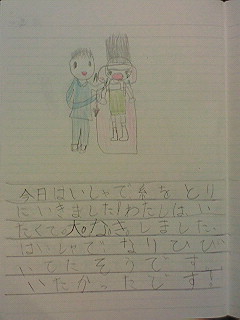 今日はいしゃで糸をとり
にいきました!わたしはい
たくて。大なき。しました、
はいしゃで。なりひび
いてたそうです
いたかったです!